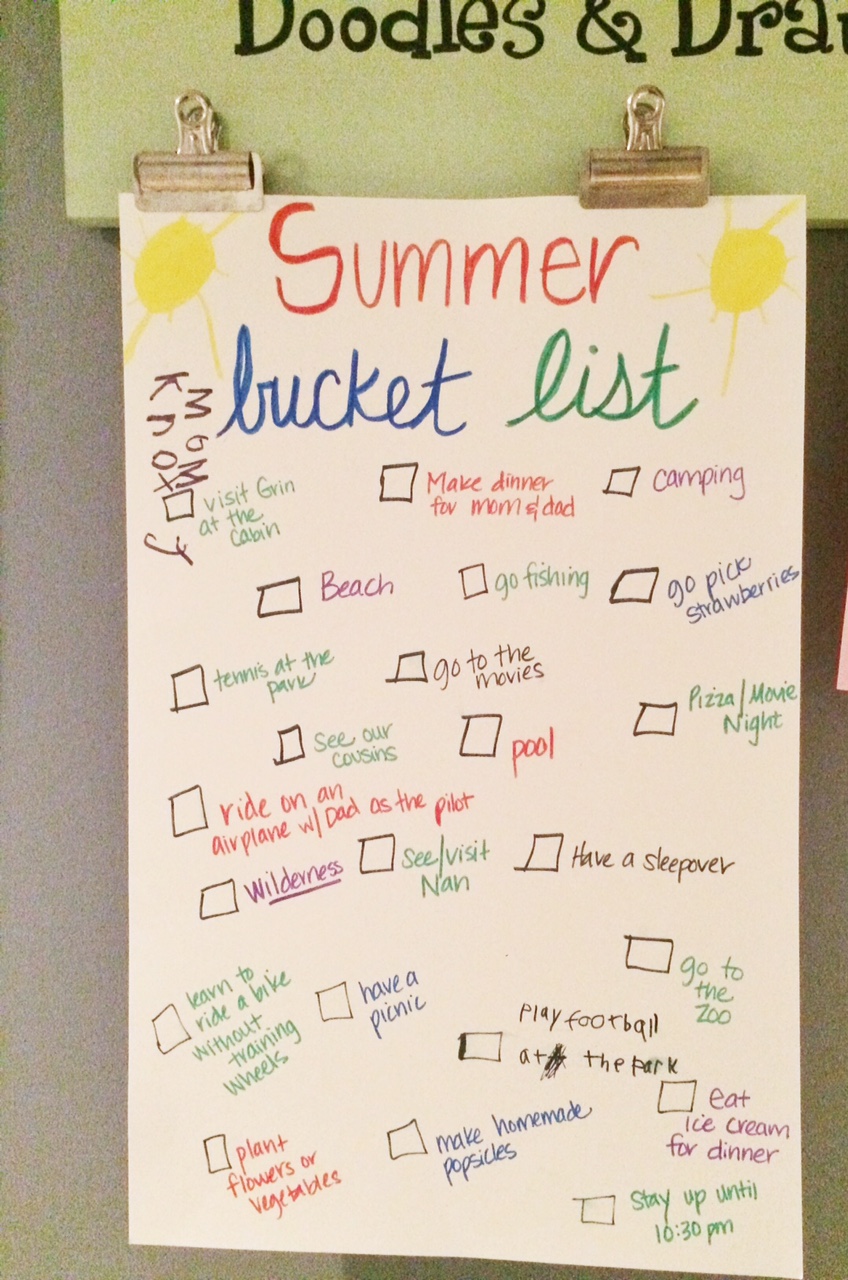 Doodles & Dra
Summer
bucket list
Mom
Knox
J
visit Grin
at the
cabin
Make dinner
for mom & dad
camping
Beach
go fishing
go pick
strawberries
tennis at the
park
go to the
movies
Pizza/Movie
Night
See our
cousins
pool
ride on an
airplane w/Dad as the pilot
See/visit
Nan
Have a sleepover
Wilderness
go to
the
Zoo
learn to
ride a bike
without
training
wheels
have a
picnic
play football
at the park
eat
ice cream
for dinner
plant
flowers or
vegetables
make homemade
popsicles
Stay up until
10:30 pm